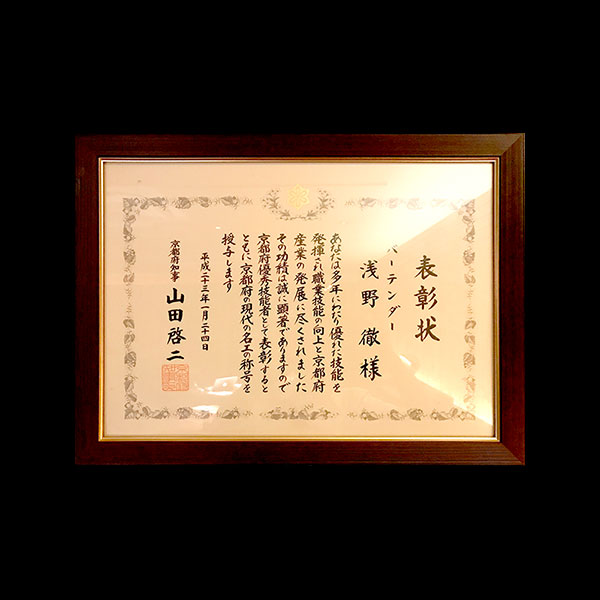 表彰状
バーテンダー
浅野 徹 様
あなたは多年にわたり優れた技能を
発揮され職業技能の向上と京都府
産業の発展に尽くされました
その功績は誠に顕著でありますので
京都府優秀技能者として表彰すると
ともに京都府の現代の名工の称号を
授与します
平成二十三年一月二十四日
京都府知事 山田啓二